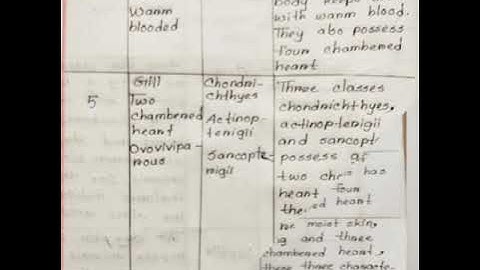 Warm
blooded
body keeps
with warm blood.
They also possess
four chambered
heart
5
Gill
Two
chambered
heart
Ovovivipa-
rous
Chondri-
chthyes
Actinop-
terigii
Sarcopte-
rigii
Three classes
chondrichthyes,
actinop-terigii
and sarcopt
possess
two has
heart four
the heart
moist skin,
and three
chambered heart,
these three characte